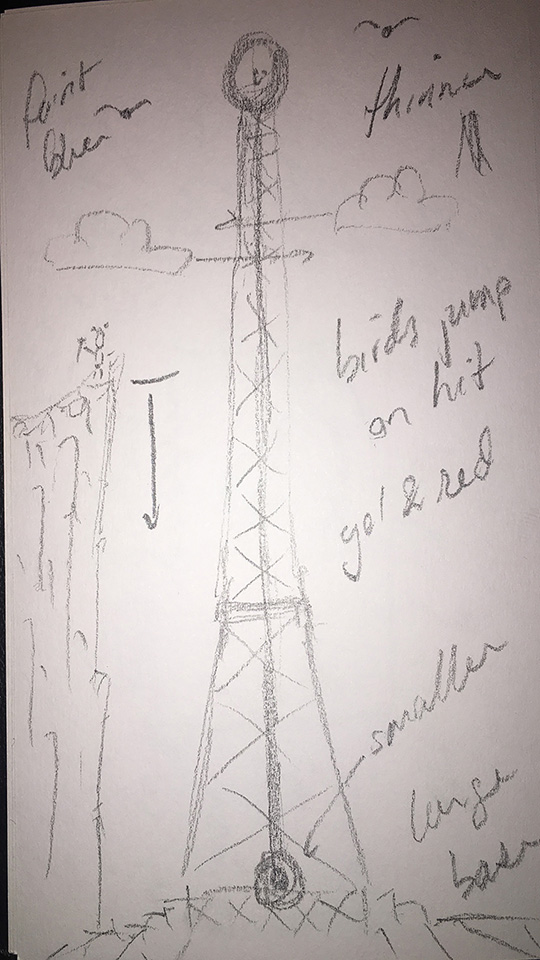 thinner
birds jump
on hit
yel & red
smaller
large
base